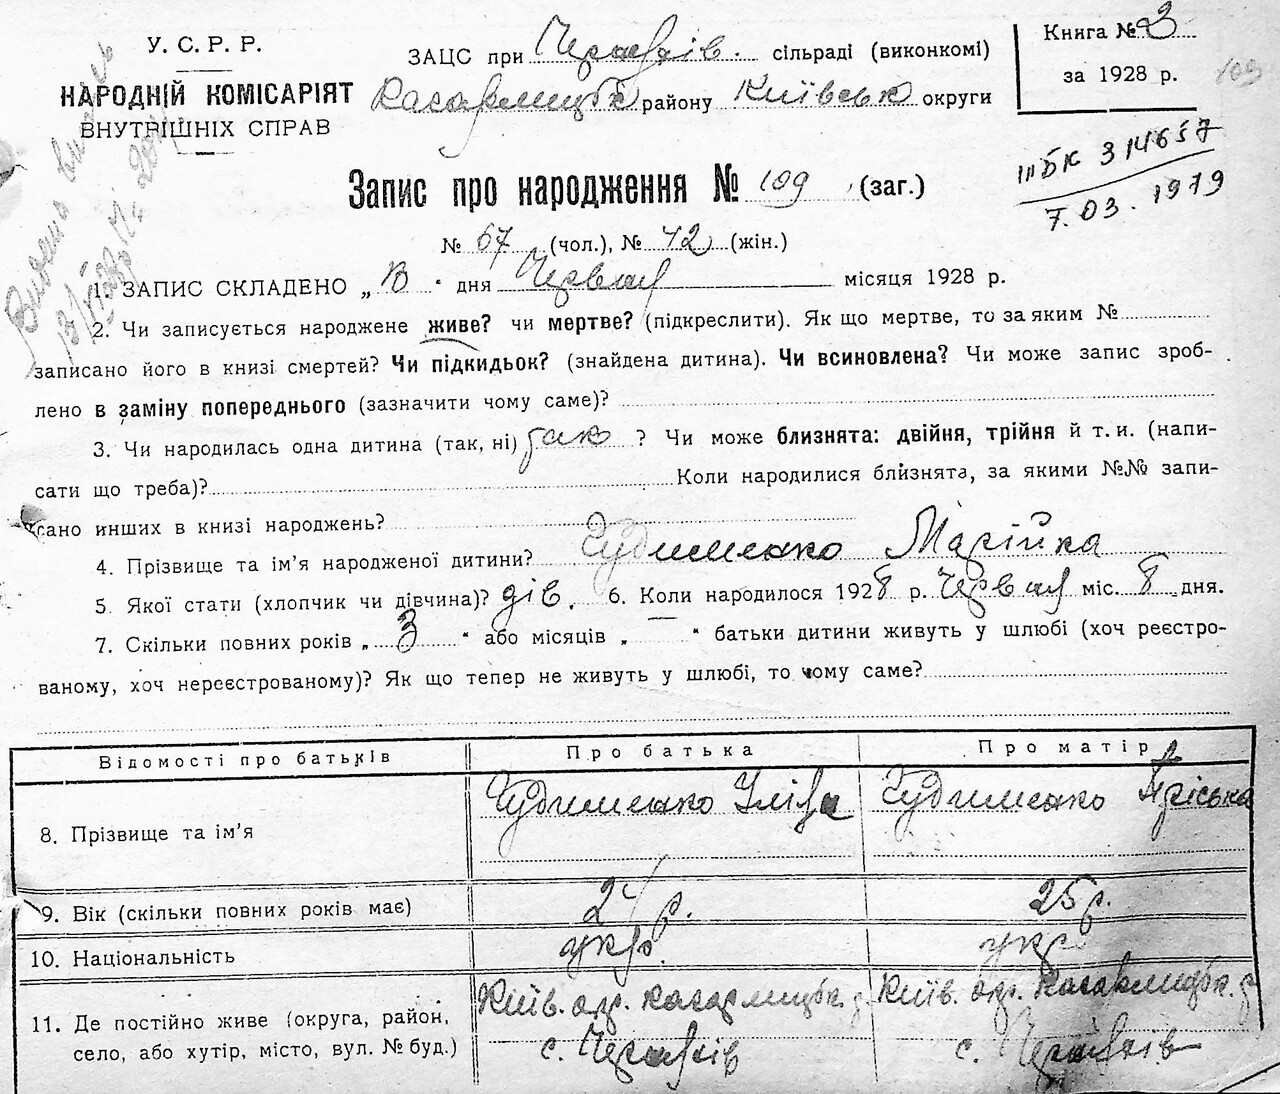 У. С. Р. Р.
НАРОДНІЙ КОМІСАРІЯТ
ВНУТРІШНІХ СПРАВ
ЗАЦС при сільраді (виконкомі)
Кагарлицьк району Київськ округи
Книга № 3
за 1928 р.
109
ІІІБК 314657
7.03.1979
Запис про народження № 109 (заг.)
№ 67 (чол.), № 42 (жін.)
1. ЗАПИС СКЛАДЕНО „ “ дня Червня місяця 1928 р.
2. Чи записується народжене живе? чи мертве? (підкреслити). Як що мертве, то за яким №
записано його в книзі смертей? Чи підкидьок? (знайдена дитина). Чи всиновлена? Чи може запис зроб-
лено в заміну попереднього (зазначити чому саме)?
3. Чи народилась одна дитина (так, ні) так ? Чи може близнята: двійня, трійня й т. и. (напи-
сати що треба)? Коли народилися близнята, за якими №№ запи-
сано инших в книзі народжень?
4. Прізвище та ім’я народженої дитини? Чудименко Марійка
5. Якої стати (хлопчик чи дівчина)? дів. 6. Коли народилося 1928 р. Червня міс. 8 дня.
7. Скільки повних років „ 3 “ або місяців „ — “ батьки дитини живуть у шлюбі (хоч реєстро-
ваному, хоч нереєстрованому)? Як що тепер не живуть у шлюбі, то чому саме?
Відомості про батьків Про батька Про матір
8. Прізвище та ім’я Чудименко Ілів Чудименко Пріська
9. Вік (скільки повних років має) 24 р. 25 р.
10. Національність укр. укр
11. Де постійно живе (округа, район, Київ. окр. Кагарлицьк. р. Київ. окр. Кагарлицьк. р
село, або хутір, місто, вул. № буд.) с. с.